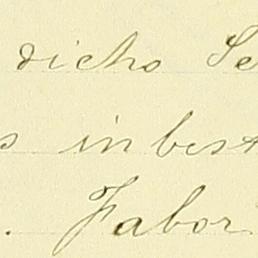 dicho Se
s inbest
. Fabor